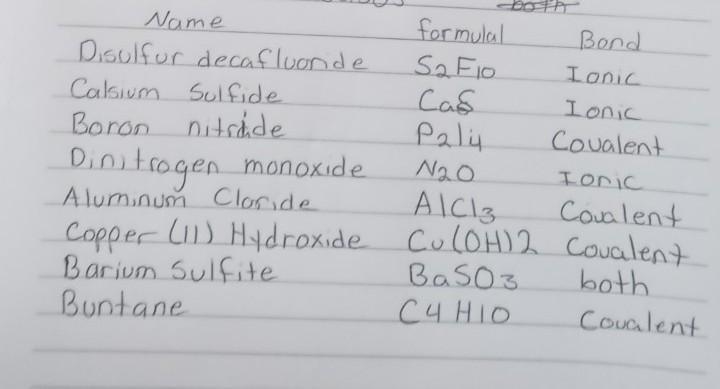 both
Name formulal Bond
Disulfur decafluoride S2F10 Ionic
Calsium Sulfide CaS Ionic
Boron nitride P2I4 Covalent
Dinitrogen monoxide N2O Ionic
Aluminum Cloride AlCl3 Covalent
Copper (II) Hydroxide Cu(OH)2 Covalent
Barium Sulfite BaSO3 both
Buntane C4H10 Covalent